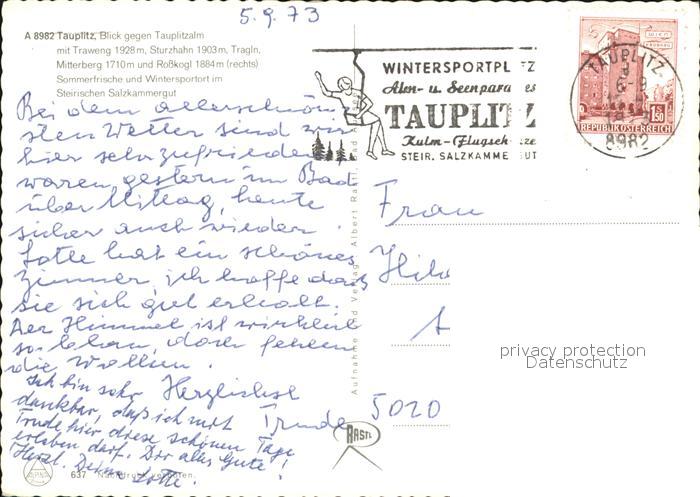 5.9.73
A 8982 Tauplitz, Blick gegen Tauplitzalm
mit Traweng 1928 m, Sturzhahn 1903 m, Tragln,
Mitterberg 1710 m und Roßkogl 1884 m (rechts)
Sommerfrische und Wintersportort im
Steirischen Salzkammergut
Bei dem allerschön
sten Wetter sind wir
hier sehr zufrieden
waren gestern im Bad
über Mittag, heute
sicher auch wieder.
Lotte hat ein schönes
Zimmer, ich hoffe daß
sie sich gut erholt.
Der Himmel ist wirklich
so blau, doch fehlen
die Wolken.
Herzlichst
Trude
Ich bin sehr
dankbar, daß ich mit
Trude hier diese schönen Tage
erleben darf. Dir alles Gute!
Herzl. Deine Lotte.
637 Nachdruck verboten.
Aufnahme und Verlag Albert Rastl, Bad
RASTL
WINTERSPORTPL TZ
Alm- u. Seenpara es
TAUPLITZ
Kulm-Flugsch ze
STEIR. SALZKAMME UT
TAUPLITZ
8982
1.50
REPUBLIK ÖSTERREICH
Frau
Hil
A
5020
privacy protection
Datenschutz